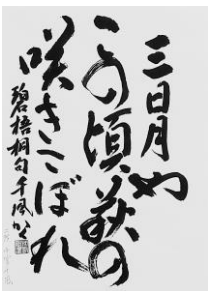 三日月や
この頃萩の
咲きこぼれ
碧梧桐句 千風かく